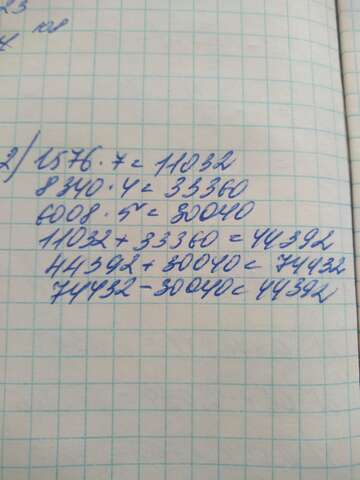 23
2) 1576 · 7 = 11032
8340 · 4 = 33360
6008 · 5 = 30040
11032 + 33360 = 44392
44392 + 30040 = 74432
74432 - 30040 = 44392